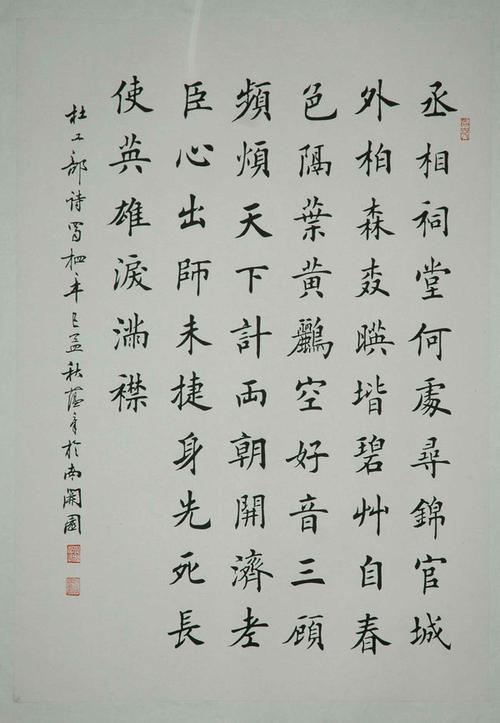 丞相祠堂何處尋錦官城
外柏森森暎堦碧艸自春
色隔葉黄鸝空好音三顧
頻煩天下計両朝開濟老
臣心出師未捷身先死長
使英雄淚滿襟
杜工部詩蜀相辛巳孟秋於南開園